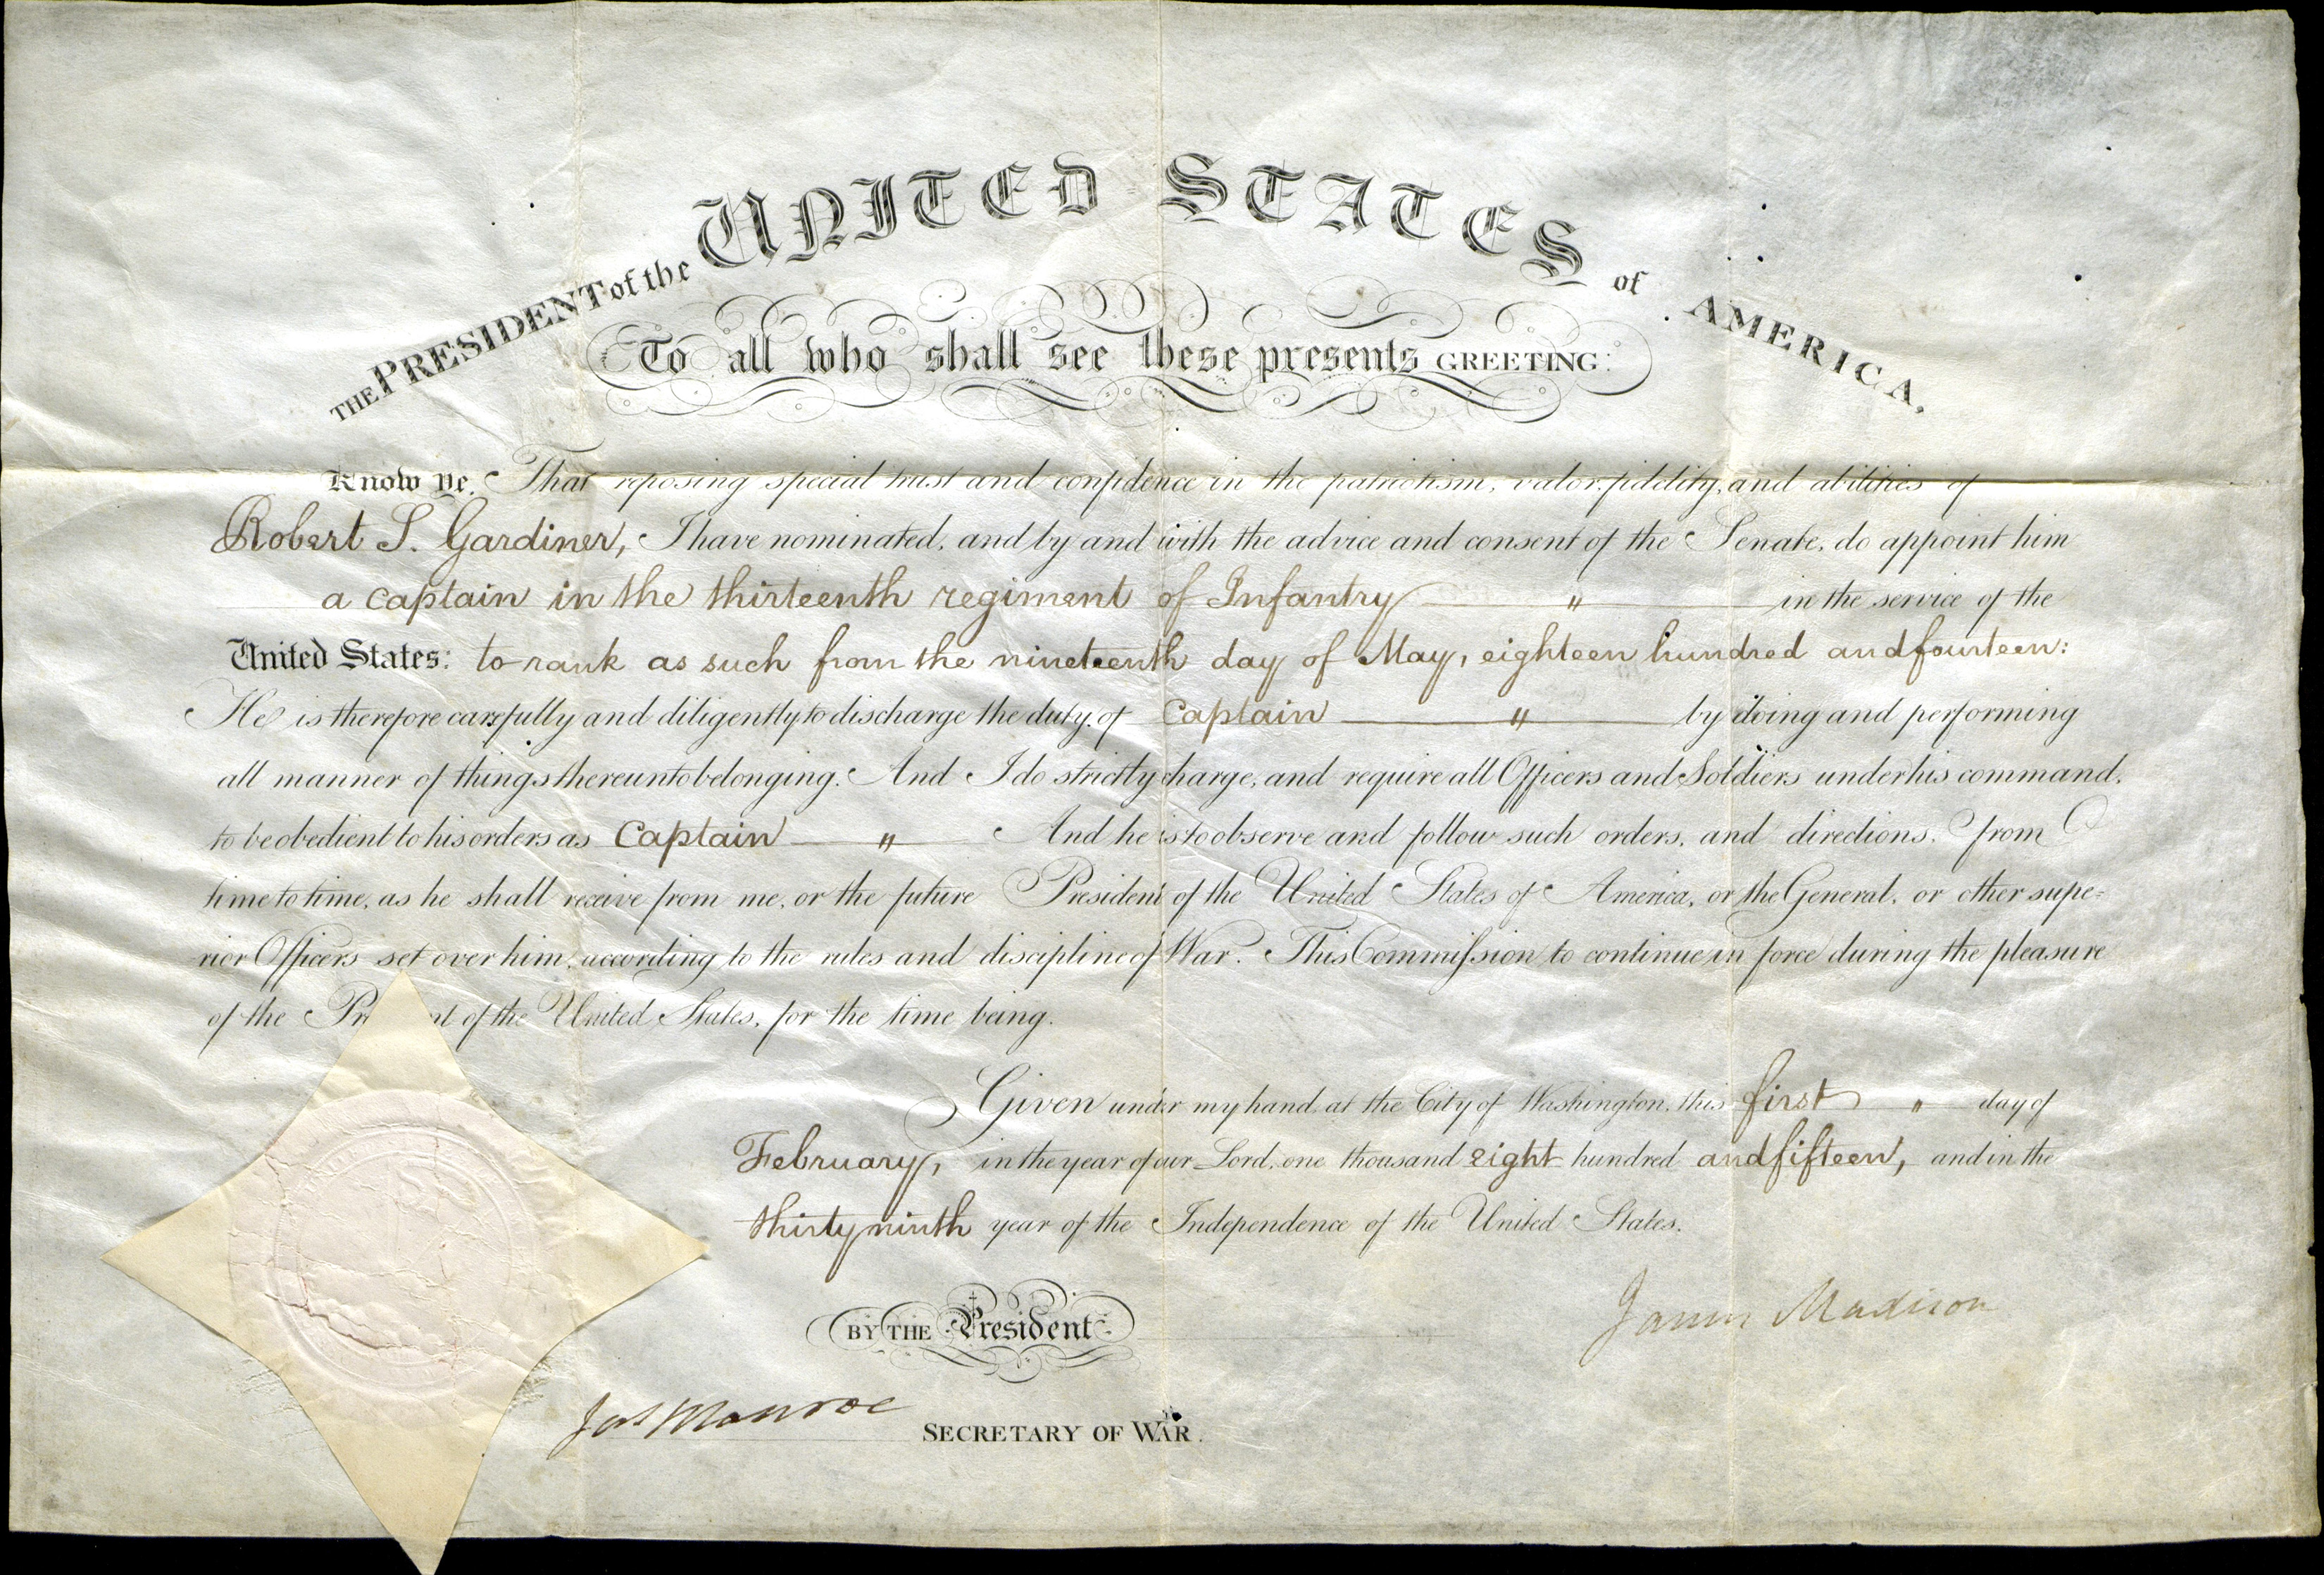 THE PRESIDENT of the UNITED STATES of AMERICA,
To all who shall see these presents GREETING:
Know ye, That reposing special trust and confidence in the patriotism, valor, fidelity, and abilities of
Robert S. Gardiner, I have nominated, and by and with the advice and consent of the Senate, do appoint him
a captain in the thirteenth regiment of Infantry " in the service of the
United States: to rank as such from the nineteenth day of May, eighteen hundred and fourteen:
He is therefore carefully and diligently to discharge the duty of Captain " by doing and performing
all manner of things thereunto belonging. And I do strictly charge, and require all Officers and Soldiers under his command,
to be obedient to his orders as Captain " And he is to observe and follow such orders, and directions, from
time to time, as he shall receive from me, or the future President of the United States of America, or the General, or other supe=
rior Officers set over him, according to the rules and discipline of War. This Commission to continue in force during the pleasure
of the Pr nt of the United States, for the time being.
Given under my hand, at the City of Washington, this first " day of
February, in the year of our Lord, one thousand eight hundred and fifteen, and in the
thirty ninth year of the Independence of the United States.
James Madison
BY THE President
Jas Monroe SECRETARY OF WAR.